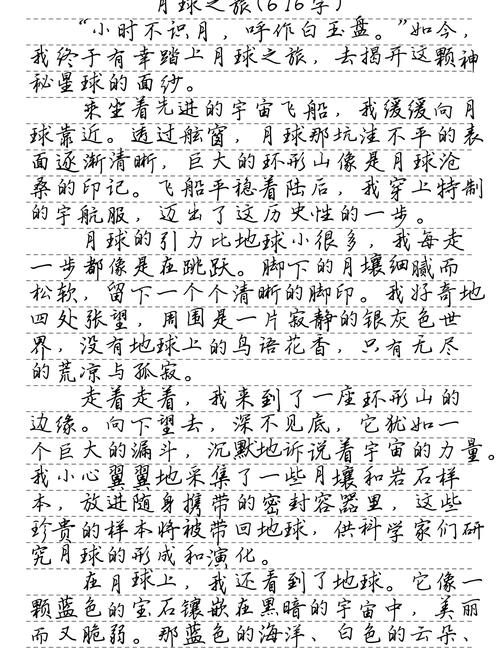 月球之旅(616字)
“小时不识月，呼作白玉盘。”如今，
我终于有幸踏上月球之旅，去揭开这颗神
秘星球的面纱。
乘坐着先进的宇宙飞船，我缓缓向月
球靠近。透过舷窗，月球那坑洼不平的表
面逐渐清晰，巨大的环形山像是月球沧
桑的印记。飞船平稳着陆后，我穿上特制
的宇航服，迈出了这历史性的一步。
月球的引力比地球小很多，我每走
一步都像是在跳跃。脚下的月壤细腻而
松软，留下一个个清晰的脚印。我好奇地
四处张望，周围是一片寂静的银灰色世
界，没有地球上的鸟语花香，只有无尽
的荒凉与孤寂。
走着走着，我来到了一座环形山的
边缘。向下望去，深不见底，它犹如一
个巨大的漏斗，沉默地诉说着宇宙的力量。
我小心翼翼地采集了一些月壤和岩石样
本，放进随身携带的密封容器里，这些
珍贵的样本将被带回地球，供科学家们研
究月球的形成和演化。
在月球上，我还看到了地球。它像一
颗蓝色的宝石镶嵌在黑暗的宇宙中，美丽
而又脆弱。那蓝色的海洋、白色的云朵、